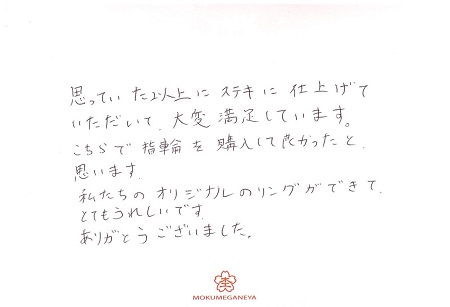 思っていた以上にステキに仕上げて
いただいて、大変満足しています。
こちらで指輪を購入して良かったと、
思います。
私たちのオリジナルのリングができて、
とてもうれしいです。
ありがとうございました。
MOKUMEGANEYA